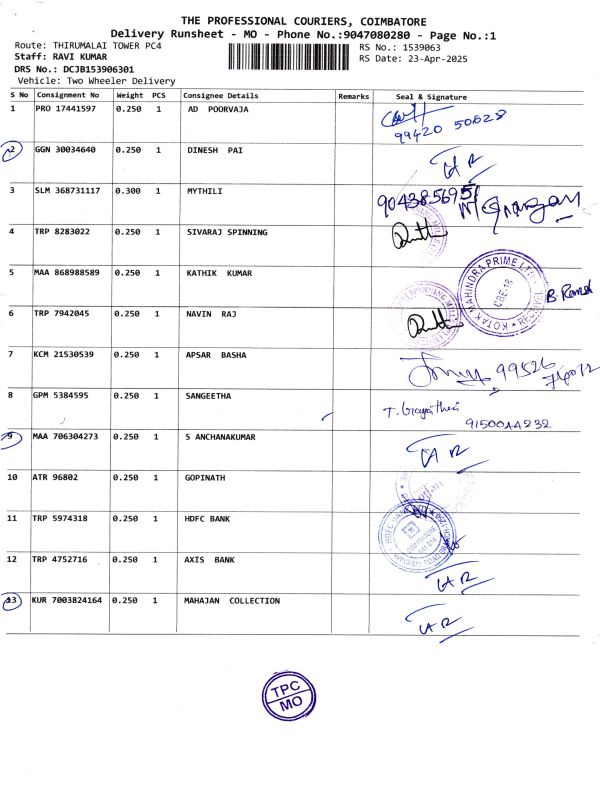 THE PROFESSIONAL COURIERS, COIMBATORE
Delivery Runsheet - MO - Phone No.:9047080280 - Page No.:1
Route: THIRUMALAI TOWER PC4
RS No.: 1539063
Staff: RAVI KUMAR
RS Date: 23-Apr-2025
DRS No.: DCJB153906301
Vehicle: Two Wheeler Delivery
S No Consignment No Weight PCS Consignee Details Remarks Seal & Signature
1 PRO 17441597 0.250 1 AD POORVAJA
99420 50828
2 GGN 30034640 0.250 1 DINESH PAI
3 SLM 368731117 0.300 1 MYTHILI
4 TRP 8283022 0.250 1 SIVARAJ SPINNING
5 MAA 868988589 0.250 1 KATHIK KUMAR
KOTAK MAHINDRA PRIME LTD
CBE-18
6 TRP 7942045 0.250 1 NAVIN RAJ
SPINNING MILL
7 KCM 21530539 0.250 1 APSAR BASHA
99526
8 GPM 5384595 0.250 1 SANGEETHA
T. Gayathri
9150044232
9 MAA 706304273 0.250 1 S ANCHANAKUMAR
10 ATR 96802 0.250 1 GOPINATH
11 TRP 5974318 0.250 1 HDFC BANK
12 TRP 4752716 0.250 1 AXIS BANK
13 KUR 7003824164 0.250 1 MAHAJAN COLLECTION
TPC
MO